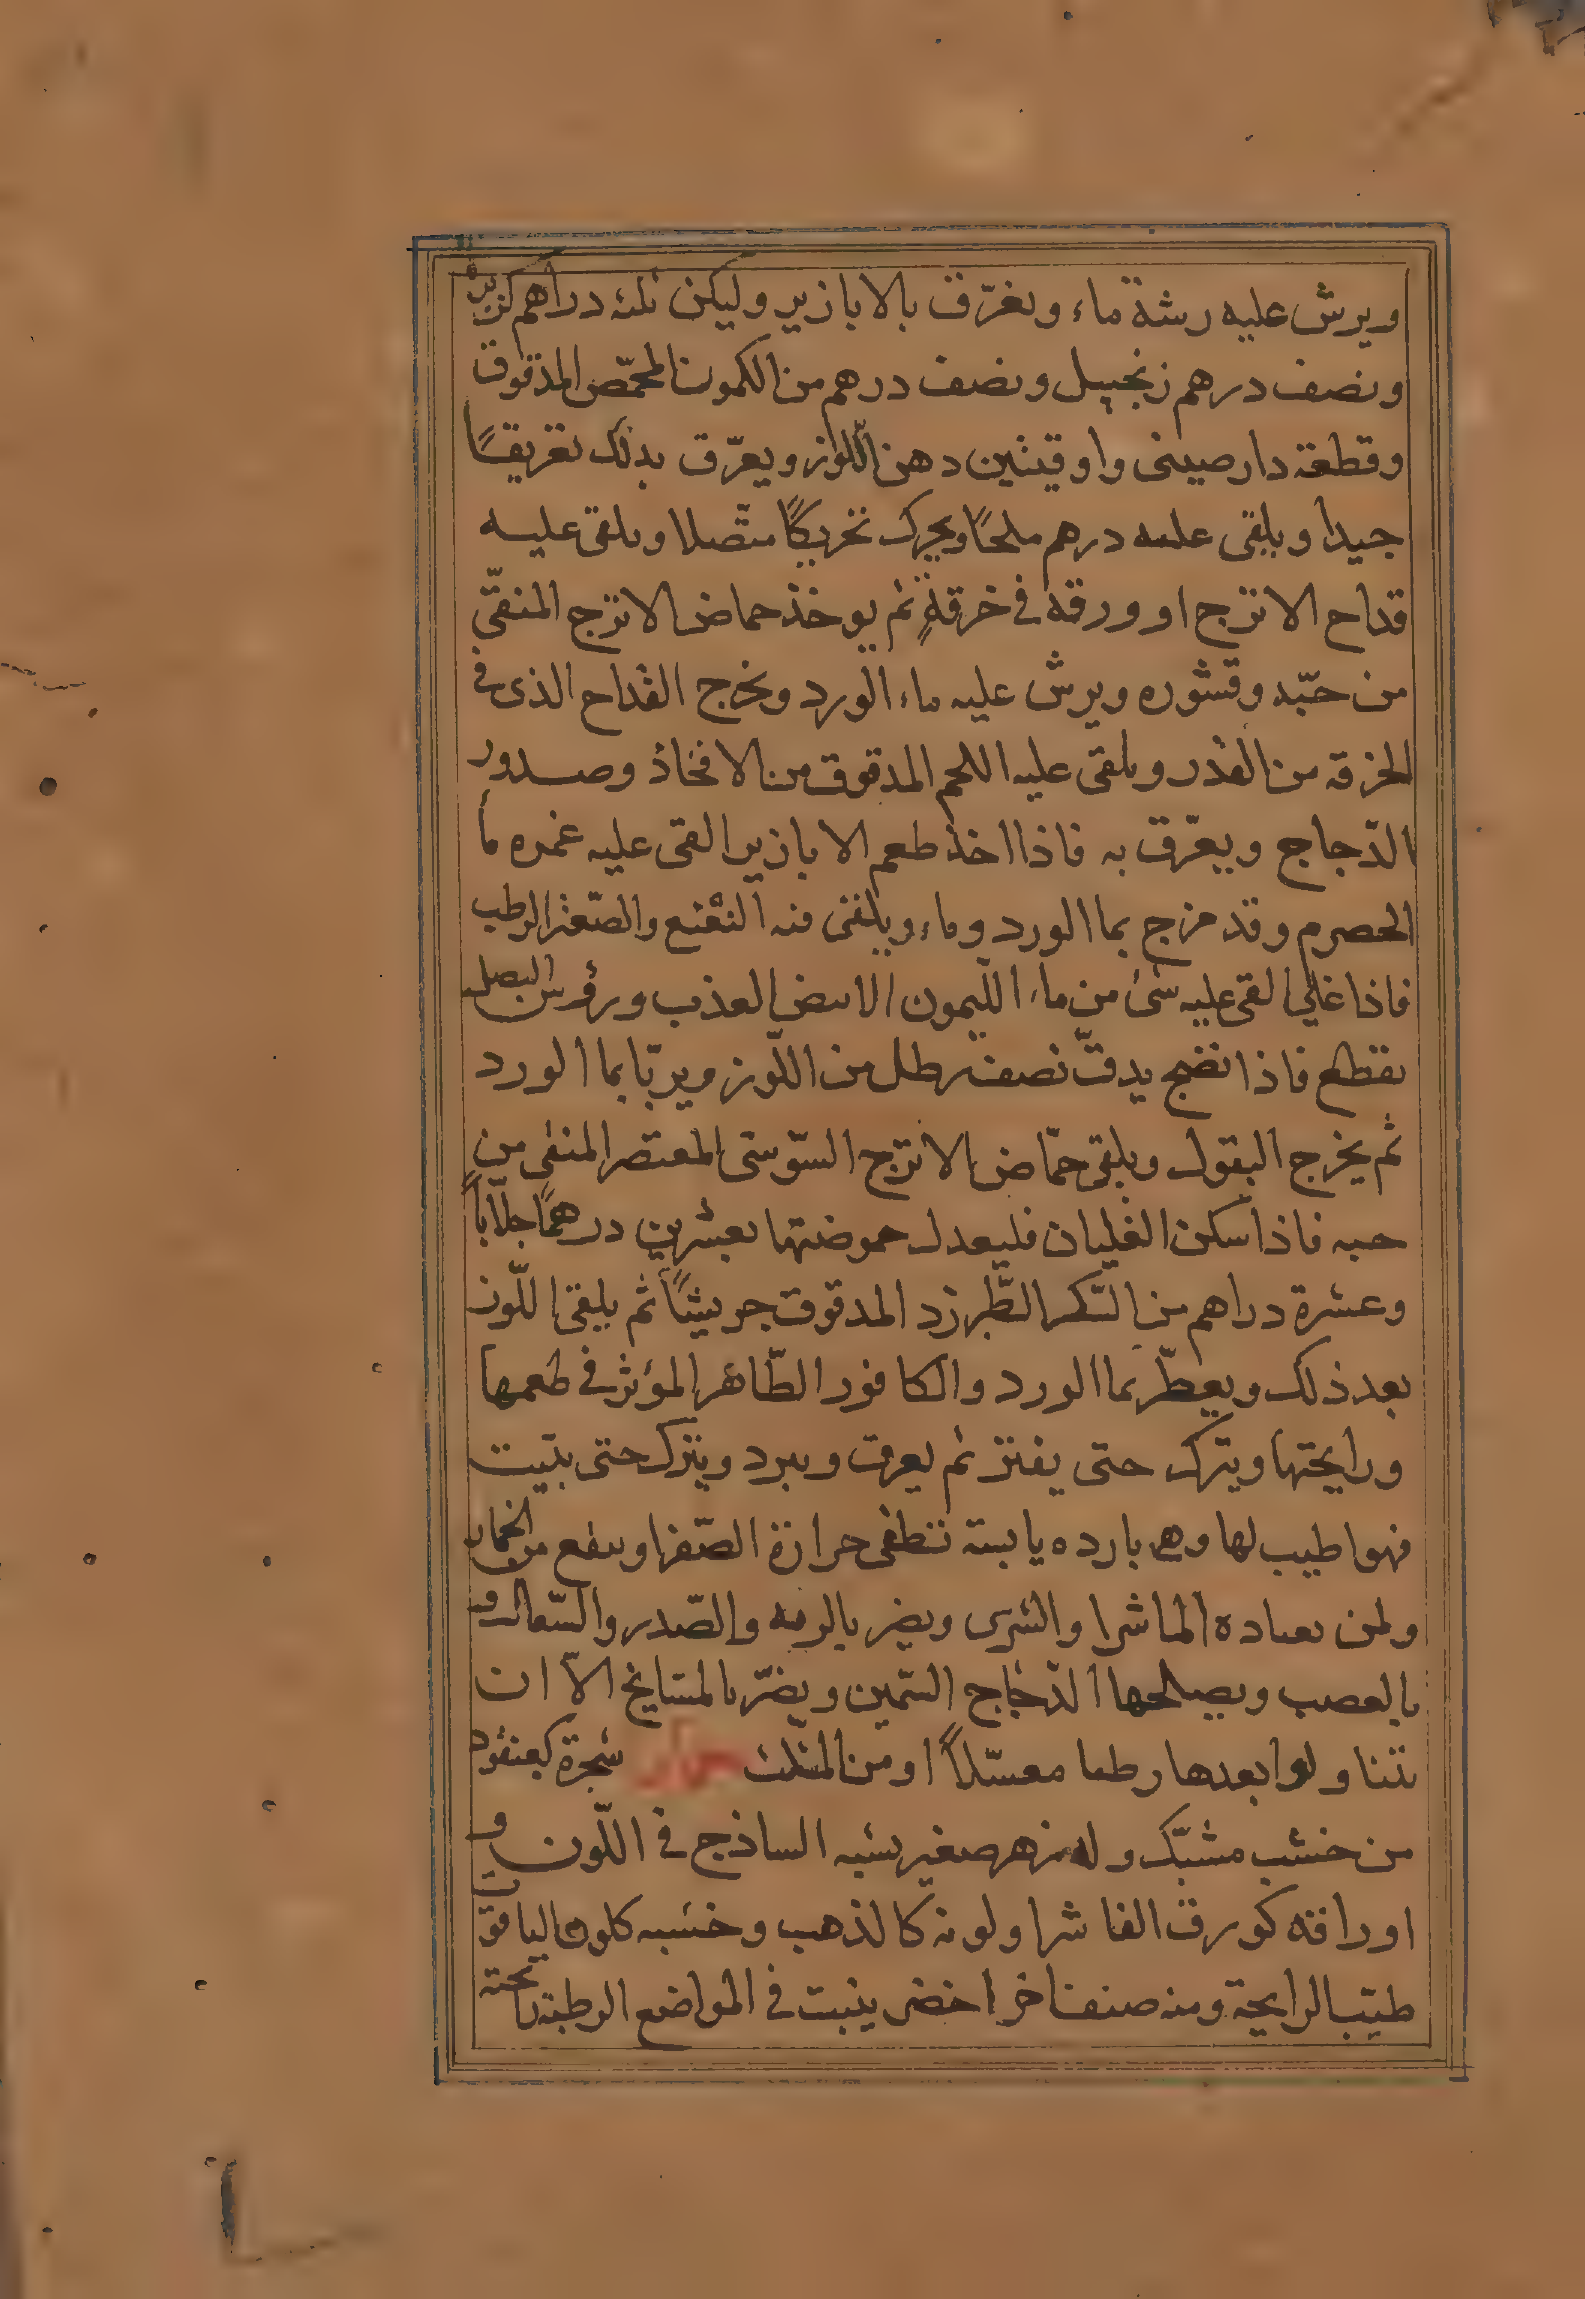 ويرش عليه رشة ماء ويغرّق بالابازير وليكن ثلثه دراهم كزبرة
ونصف درهم زنجبيل ونصف درهم من الكمون المحمّص المدقوق
وقطعة دارصيني واوقيتين دهن اللّوز ويعرّق بذلك تعريقًا
جيدا ويلقى عليه درهم ملحًا ويحرك تحريكًا متّصلا ويلقى عليه
قداح الاترج او ورقه في خرقةٍ ثم يوخذ حماض الاترج المنقّى
من حبّه وقشوره ويرش عليه ماء الورد ويخرج القداح الذى فى
الخرقه من القدر ويلقى عليه اللحم المدقوق من الافخاذ وصدور
الدّجاج ويعرّق به فاذا اخذ طعم الابازير القى عليه غمره ما
الحصرم وقد مزج بما الورد وماء ويلقى فيه النعْنع والصّعتر الرطب
فاذا غلي القى عليه شئ من ماء اللّيمون الابيض العذب ورؤس البصل
يقطع فاذا نضج يدقّ نصف رطل من اللّوز ويربّا بما الورد
ثم يخرج البقول ويلقى حمّاض الاترّج السّوسى المعتصر المنقى من
حبه فاذا سكن الغليان فليعدل حموضتها بعشرين درهمًا جلّابًا
وعشرة دراهم من السّكر الطّبرزد المدقوق جريشًا ثم يلقى اللّوز
بعد ذلك ويعطّر بما الورد والكافور الطّاهر المؤثر فى طعمها
ورايحتها ويترك حتى يفتر ثم يغرف ويبرد ويترك حتى يبيت
فهو اطيب لها وهى بارده يابسة تنطفى حرارة الصّفرا وينفع من الخمار
ولمن يعتاده الماشرا والشرى ويضر بالريه والصّدر والسّعال و
بالعصب ويصلحها الدّجاج السّمين ويضرّ بالمشايخ الّا ان
يتناولوا بعدها رطبا معسّلًا او من المثلث شجرة كعنقود
من خشب مشبّك وله زهر صغير يشبه الساذج فى اللّون و
اوراقه كورق الفاشرا ولونه كالذهب وخشبه كلون الياقوت
طيّب الرايحة ومنه صنف اخر اخضر ينبت في المواضع الرطبة رايحته